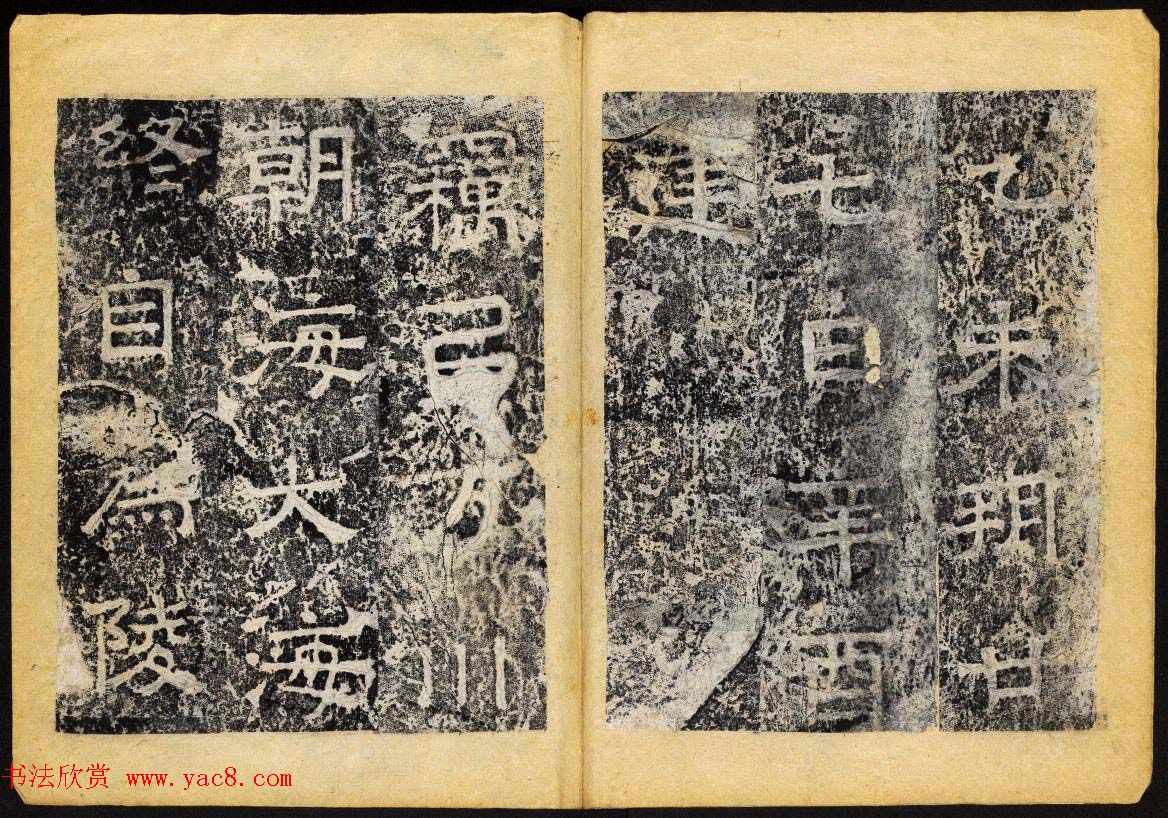 乙未朔廿
七日辛酉
建
竊㠯川
朝海大海
終自為陵
书法欣赏 www.yac8.com